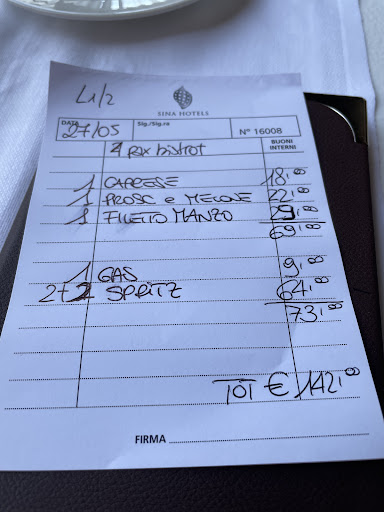 L1/2
SINA HOTELS
DATA Sig./Sig.ra
27/05 N° 16008
BUONI INTERNI
pax bistrot
1 CAPRESE 18,00
1 PROSC e MELONE 22,00
1 FILETTO MANZO 29,00
69,00
1 GAS 9,00
2+2 SPRITZ 64,00
73,00
TOT € 142,00
FIRMA